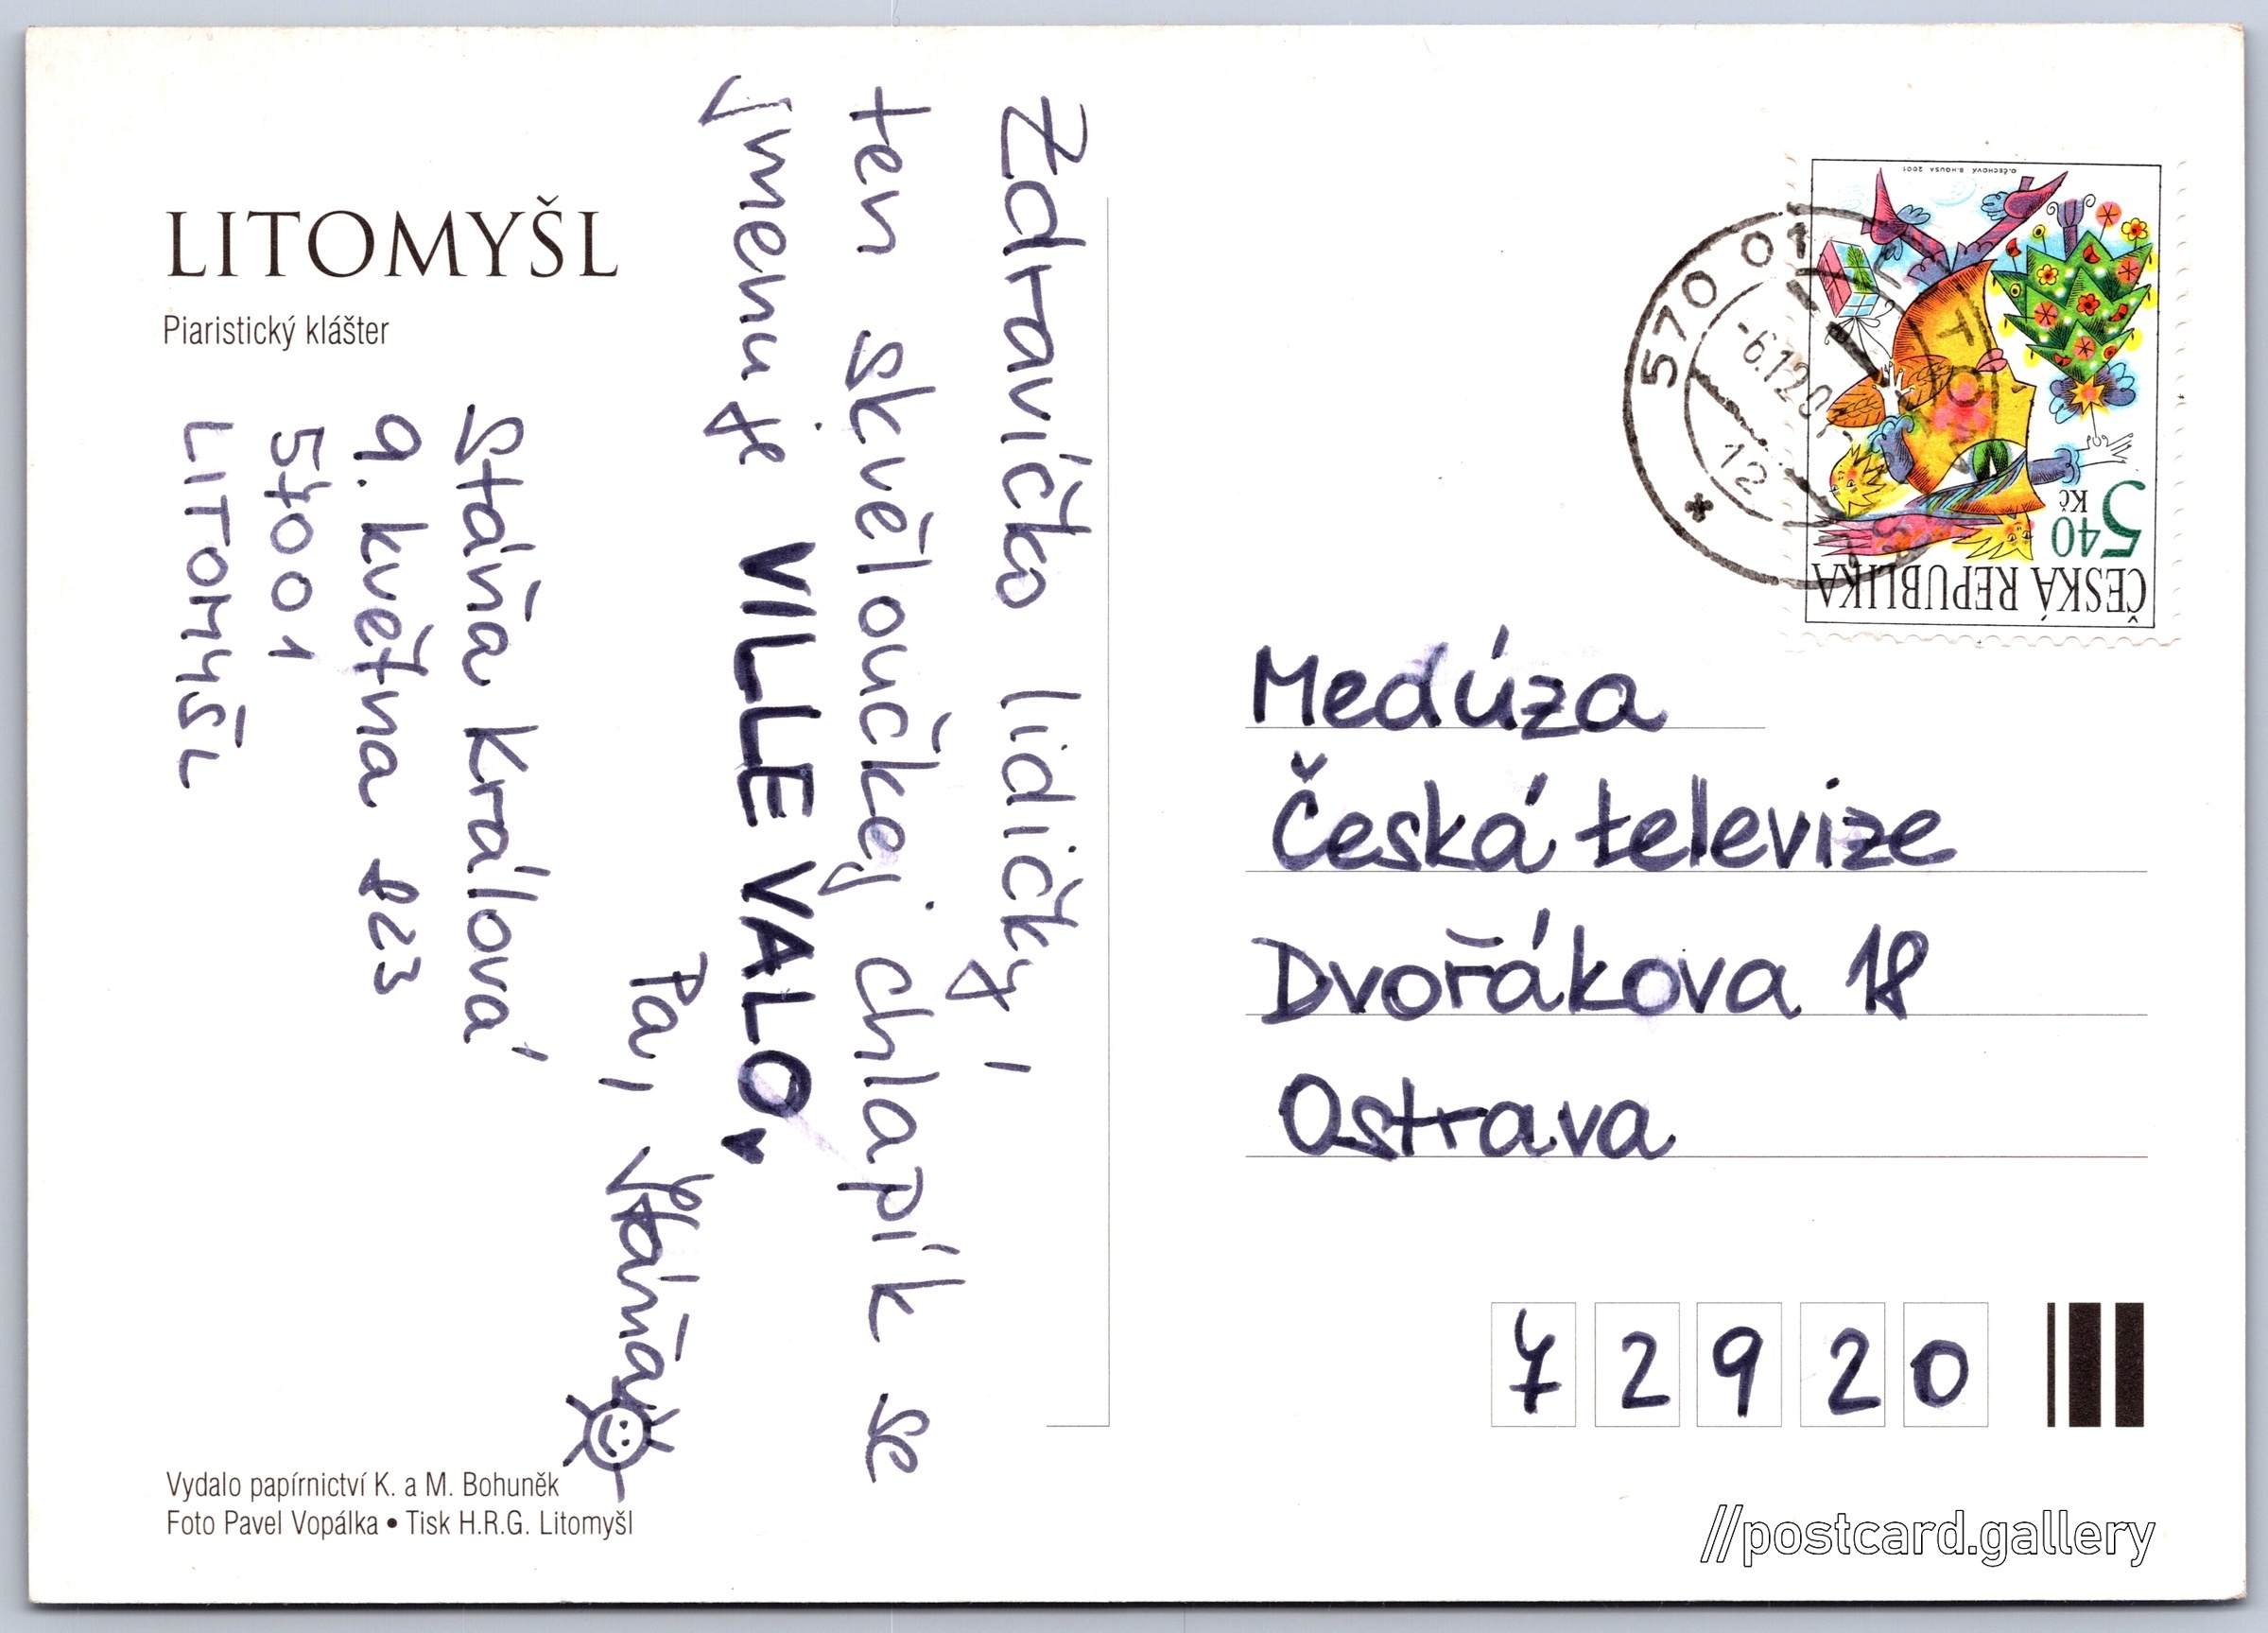 LITOMYŠL
Piaristický klášter
Zdravíčko lidičky,
ten skvěloučkej chlapík se
jmenuje VILLE VALO.
Pa, Stáňa
Stáňa Králová
9. května 823
57001
LITOMYŠL
Vydalo papírnictví K. a M. Bohuněk
Foto Pavel Vopálka • Tisk H.R.G. Litomyšl
570 01
-6.12.0
12
O.ČECHOVÁ B.HOUSA 2001
540
Kč
ČESKÁ REPUBLIKA
Medúza
Česká televize
Dvořákova 18
Ostrava
7 2 9 2 0
//postcard.gallery